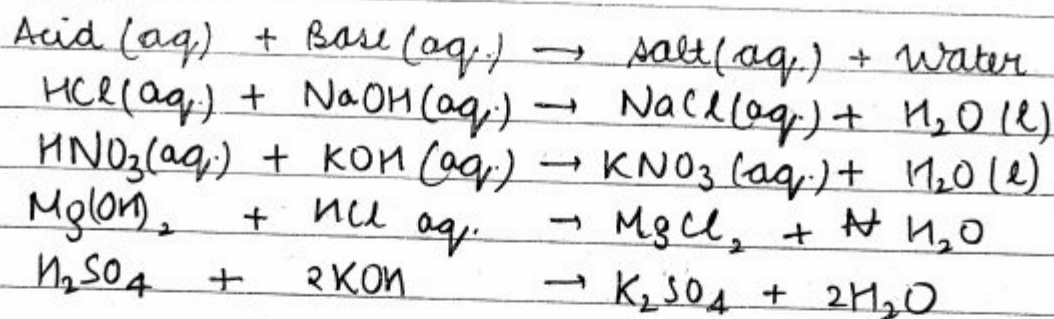 Acid (aq) + Base (aq.) → salt (aq.) + Water
HCl (aq.) + NaOH (aq.) → NaCl (aq.) + H₂O (l)
HNO₃ (aq.) + KOH (aq.) → KNO₃ (aq.) + H₂O (l)
Mg(OH)₂ + HCl aq. → MgCl₂ + H₂O
H₂SO₄ + 2KOH → K₂SO₄ + 2H₂O